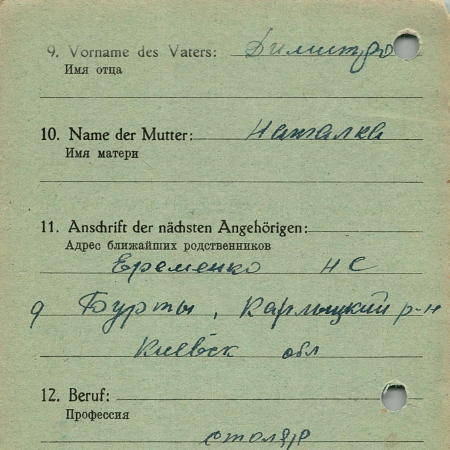 9. Vorname des Vaters: Димитро
Имя отца
10. Name der Mutter: Наталка
Имя матери
11. Anschrift der nächsten Angehörigen:
Адрес ближайших родственников
Еременко Н С
д Бурты, Карлыцкий р-н
Киевск обл
12. Beruf:
Профессия
столяр